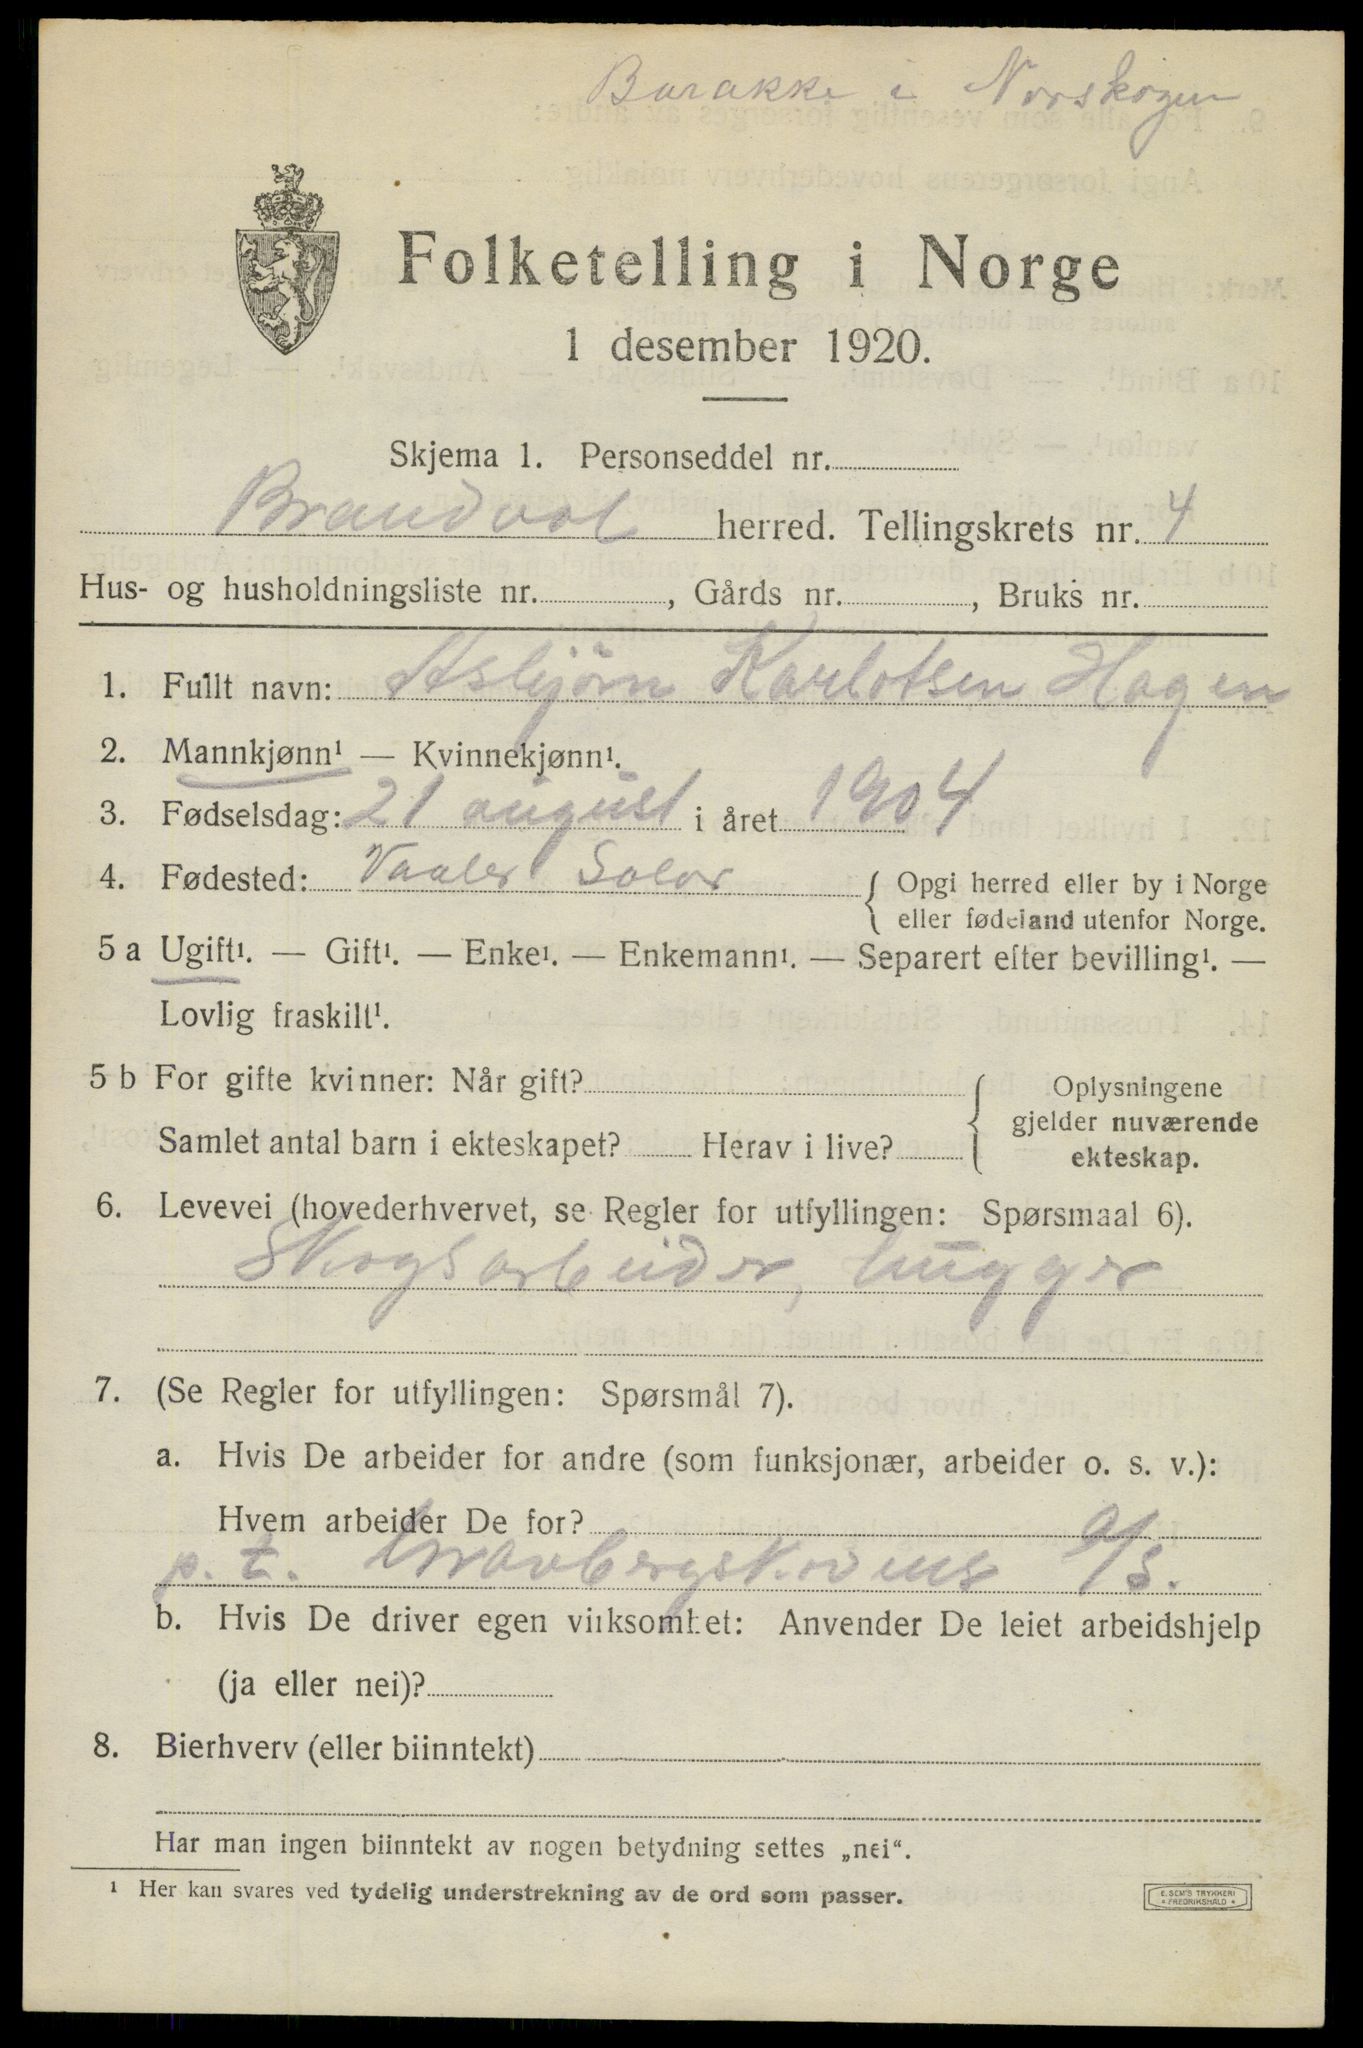 Barakke i Norskogen
Folketelling i Norge
1 desember 1920.
Skjema 1. Personseddel nr.
Brandvol herred. Tellingskrets nr. 4
Hus- og husholdningsliste nr. , Gårds nr. , Bruks nr.
1. Fullt navn: Asbjörn Karlotsen Hagen
2. Mannkjønn¹ — Kvinnekjønn¹.
3. Fødselsdag: 21 august i året 1904
4. Fødested: Vaaler Solør { Opgi herred eller by i Norge
eller fødeland utenfor Norge.
5 a Ugift¹. — Gift¹. — Enke¹. — Enkemann¹. — Separert efter bevilling¹. —
Lovlig fraskilt¹.
5 b For gifte kvinner: Når gift?
Samlet antal barn i ekteskapet? Herav i live?
Oplysningene
gjelder nuværende
ekteskap.
6. Levevei (hovederhvervet, se Regler for utfyllingen: Spørsmaal 6).
Skogsarbeider, hugger
7. (Se Regler for utfyllingen: Spørsmål 7).
a. Hvis De arbeider for andre (som funksjonær, arbeider o. s. v.):
Hvem arbeider De for?
p. t. Gravbergskovens A/S.
b. Hvis De driver egen virksomhet: Anvender De leiet arbeidshjelp
(ja eller nei)?
8. Bierhverv (eller biinntekt)
Har man ingen biinntekt av nogen betydning settes „nei“.
¹ Her kan svares ved tydelig understrekning av de ord som passer.
E. SEM'S TRYKKERI
• FREDRIKSHALD •